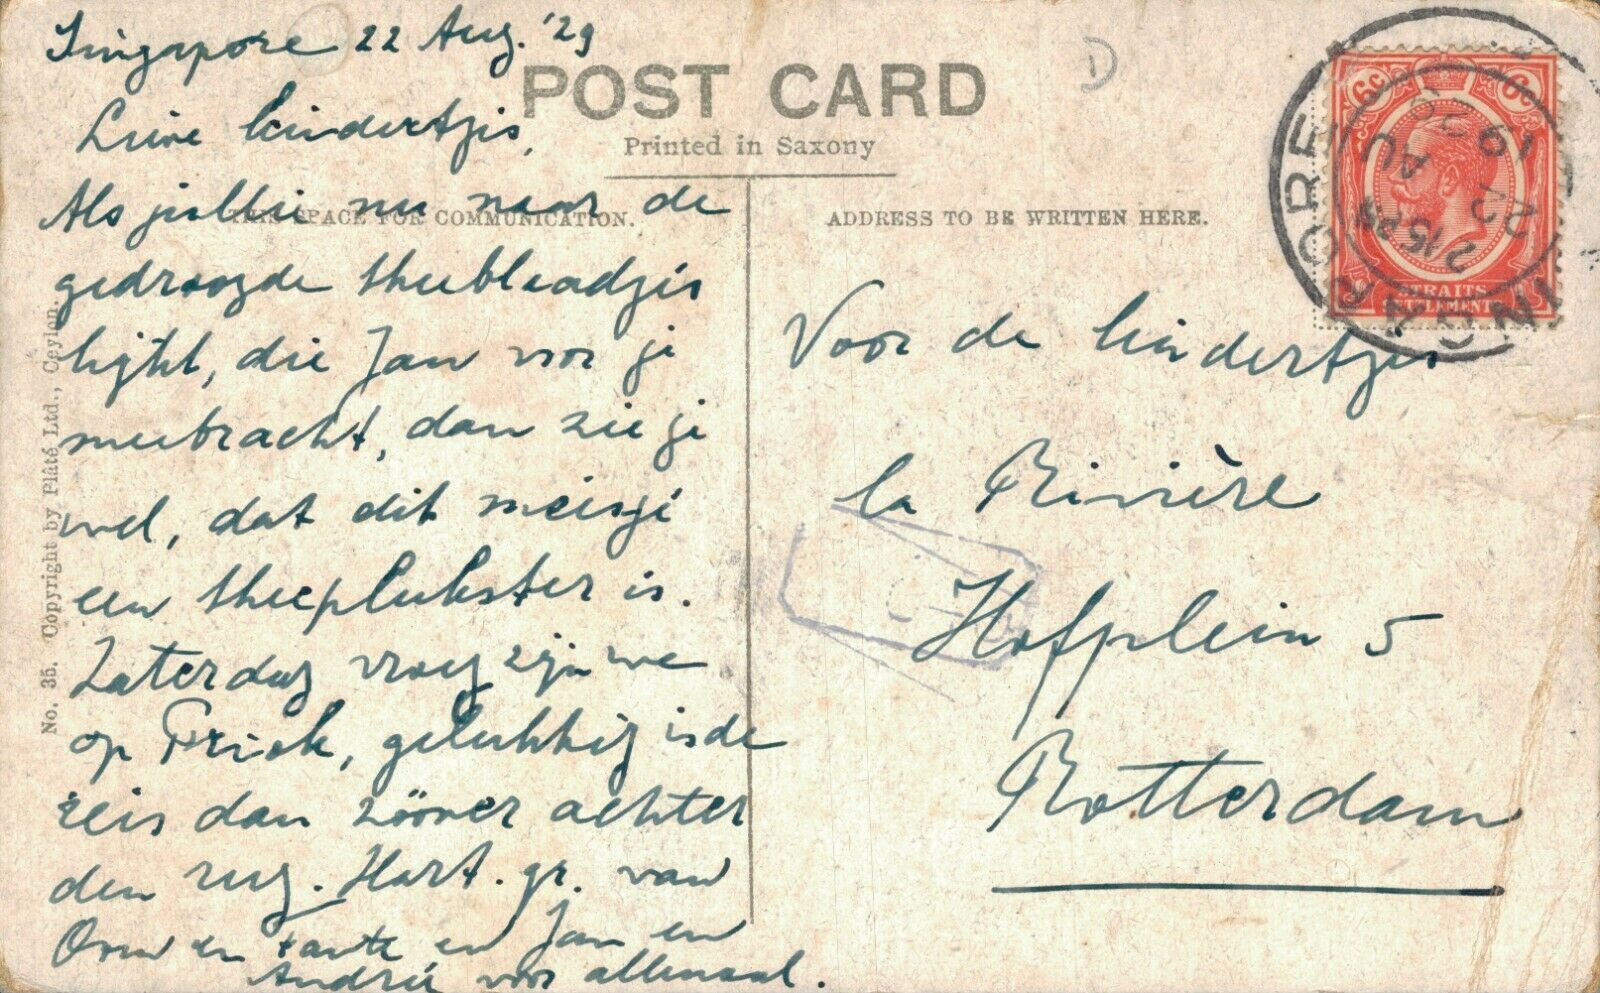 Singapore 22 Aug. '29
POST CARD
Printed in Saxony
THIS SPACE FOR COMMUNICATION.
ADDRESS TO BE WRITTEN HERE.
Lieve kindertjes,
Als jullie nu naar de
gedroogde theebleadjes
kijkt, die Jan voor je
meebracht, dan zie je
wel, dat dit meisje
een theeplukster is.
Zaterdag vroeg zijn we
op Priok, gelukkig is de
reis dan zóóver achter
den rug. Hart. gr. van
Oom en tante en Jan en
Andrée voor allemaal.
Voor de kindertjes
la Rivière
Hofplein 5
Rotterdam
No. 35. Copyright by Plâté Ltd., Ceylon.
6c 6c
STRAITS
SETTLEMENTS
SINGAPORE
2.15 PM
22 AU
1929
D